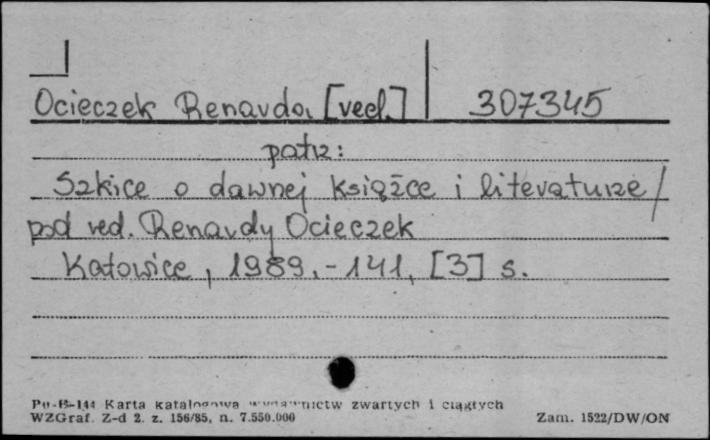 Ocieczek Renarda [red.] 307345
patrz:
Szkice o dawnej książce i literaturze /
pod red. Renardy Ocieczek
Katowice, 1989. - 141, [3] s.
Pu-B-144 Karta katalogowa wydawnictw zwartych i ciągłych
WZGraf. Z-d 2. z. 156/85, n. 7.550.000 Zam. 1522/DW/ON